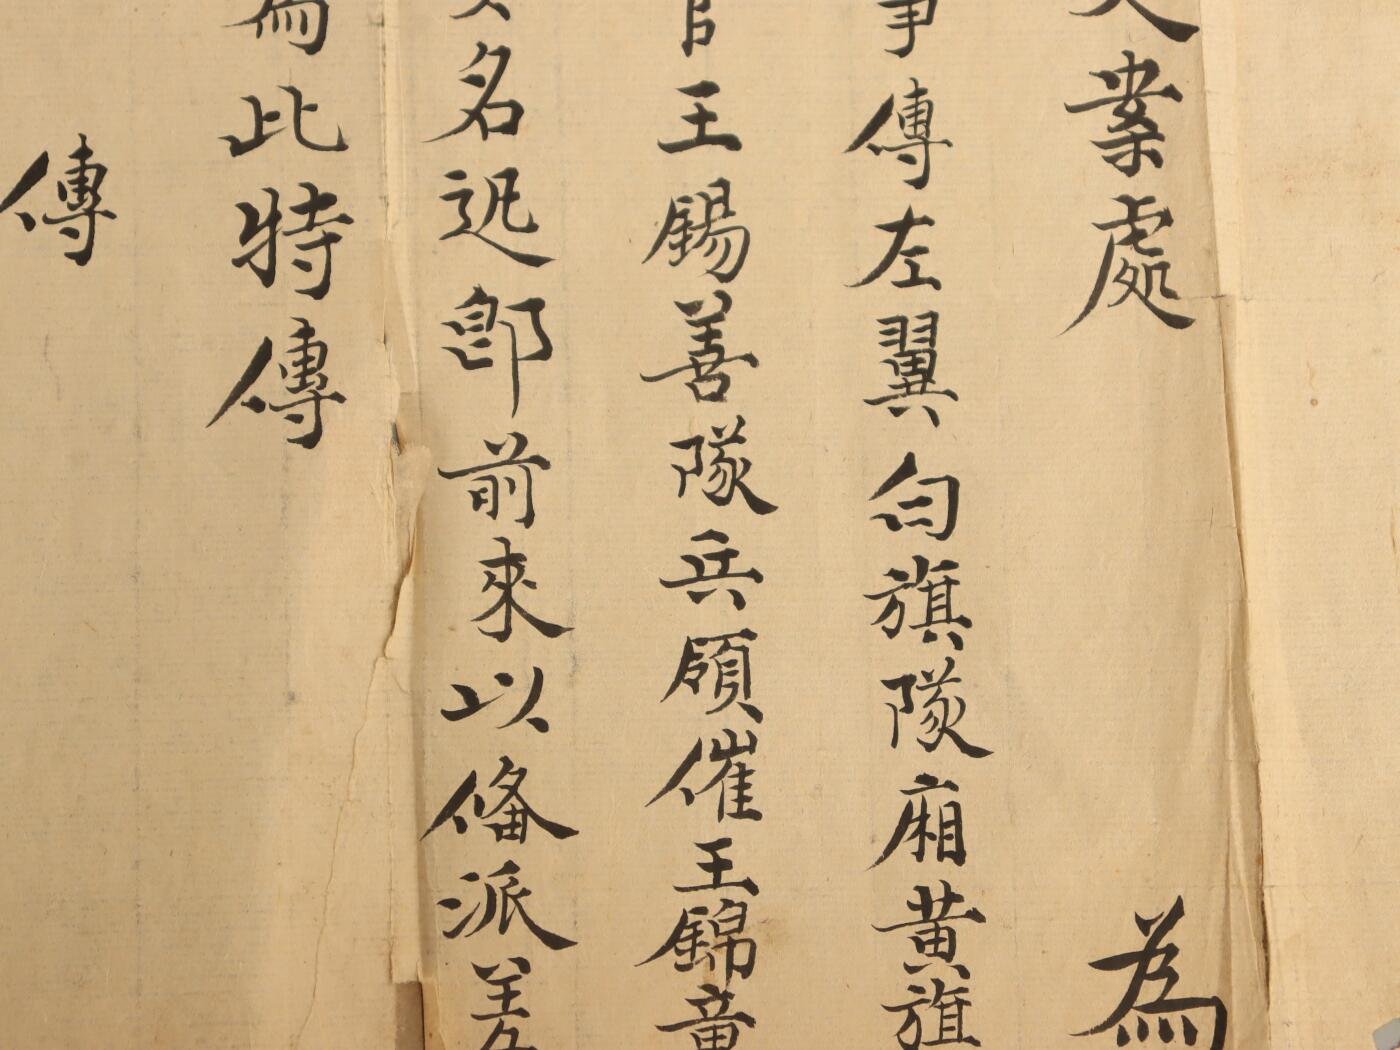 文案處 為
事傳左翼匀旗隊廂黃旗
官王錫善隊兵領催王錦章
名迅即前來以俻派差
為此特傳
傳